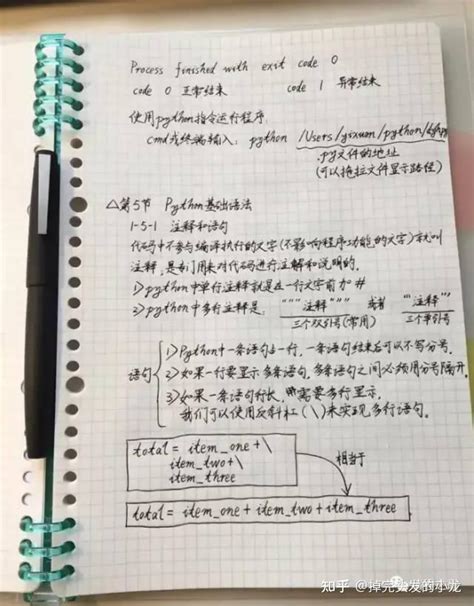 Process finished with exit code 0
code 0 正常结束 code 1 异常结束
使用python指令运行程序:
cmd或终端输入: python /Users/yixuan/python/
.py文件的地址
(可以拖拉文件显示路径)
△第5节 Python基础语法
1-5-1 注释和语句
代码中不参与编译执行的文字(不影响程序功能的文字)就叫
注释,是专门用来对代码进行注解和说明的.
1>python中单行注释就是在一行文字前加#
2>python中多行注释是: """注释""" 或者 '''注释'''
三个双引号(常用) 三个单引号
语句
1>Python中一条语句占一行,一条语句结束后可以不写分号.
2>如果一行要显示多条语句,多条语句之间必须用分号隔开.
3>如果一条语句行长,需要多行显示,
我们可以使用反斜杠(\)来实现多行语句.
total = item_one +\
item_two+\
item_three
相当于
total = item_one + item_two + item_three
知乎 @掉完头发的小龙